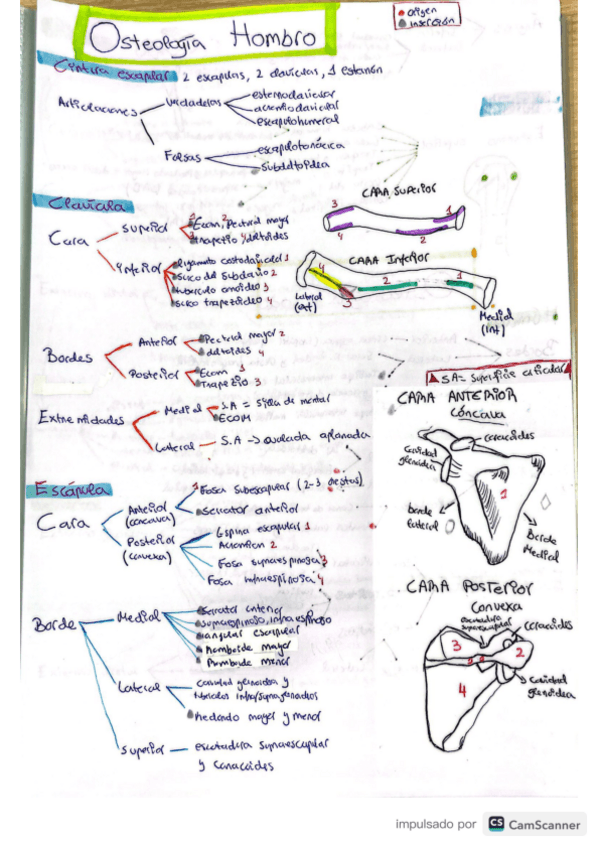 Osteología Hombro
origen
inserción
Cintura escapular 2 escápulas, 2 clavículas, 1 esternón
Articulaciones
verdaderas
esternoclavicular
acromioclavicular
escapulohumeral
Falsas
escapulotorácica
subdeltoidea
Clavícula
Cara
superior
1 Ecom, 2 Pectoral mayor
3 trapecio 4 deltoides
Inferior
ligamento costoclavicular 1
surco del subclavio 2
tubérculo conoideo 3
surco trapezoideo 4
CARA SUPERIOR
3
1
4
2
CARA Inferior
4
2
1
3
Lateral
(ext)
Medial
(int)
Bordes
Anterior
Pectoral mayor 2
deltoides 4
Posterior
Ecom 1
Trapecio 3
SA = Superficie articular
Extremidades
Medial
S.A = Silla de montar
ECOM
Lateral
S.A → ovalada aplanada
CARA ANTERIOR
cóncava
coracoides
Cavidad glenoidea
1
borde lateral
Borde Medial
Escápula
Cara
Anterior
(cóncava)
1 Fosa subescapular (2-3 crestas)
Serrator anterior
Posterior
(convexa)
Espina escapular 1
Acromion 2
Fosa supraespinosa 3
Fosa infraespinosa 4
CARA POSTERIOR
Convexa
escotadura supraescapular
coracoides
3
2
4
Cavidad glenoidea
Borde
Medial
Serrator anterior
supraespinoso, infraespinoso
angular escapular
Romboide mayor
Romboide menor
Lateral
cavidad glenoidea y
tubérculos infra/supraglenoideos
Redondo mayor y menor
Superior
escotadura supraescapular
y coracoides
impulsado por CS CamScanner